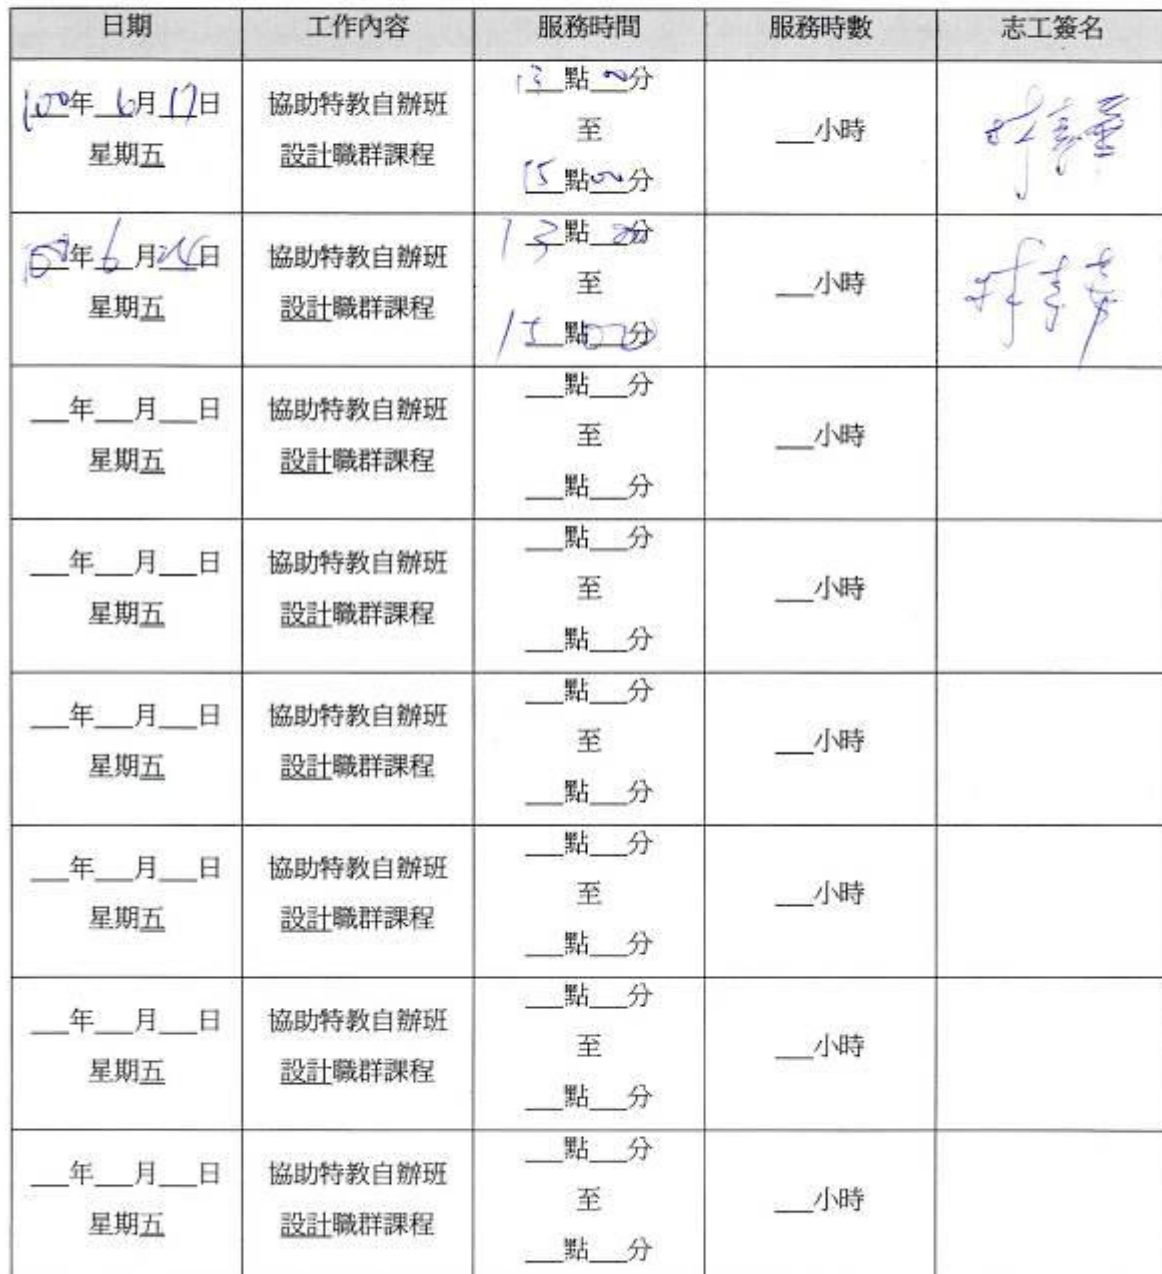 日期 工作內容 服務時間 服務時數 志工簽名
100年 6月 17日
星期五
協助特教自辦班
設計職群課程
13點00分
至
15點00分
___小時
100年 6月 24日
星期五
協助特教自辦班
設計職群課程
13點00分
至
15點00分
___小時
___年___月___日
星期五
協助特教自辦班
設計職群課程
___點___分
至
___點___分
___小時
___年___月___日
星期五
協助特教自辦班
設計職群課程
___點___分
至
___點___分
___小時
___年___月___日
星期五
協助特教自辦班
設計職群課程
___點___分
至
___點___分
___小時
___年___月___日
星期五
協助特教自辦班
設計職群課程
___點___分
至
___點___分
___小時
___年___月___日
星期五
協助特教自辦班
設計職群課程
___點___分
至
___點___分
___小時
___年___月___日
星期五
協助特教自辦班
設計職群課程
___點___分
至
___點___分
___小時